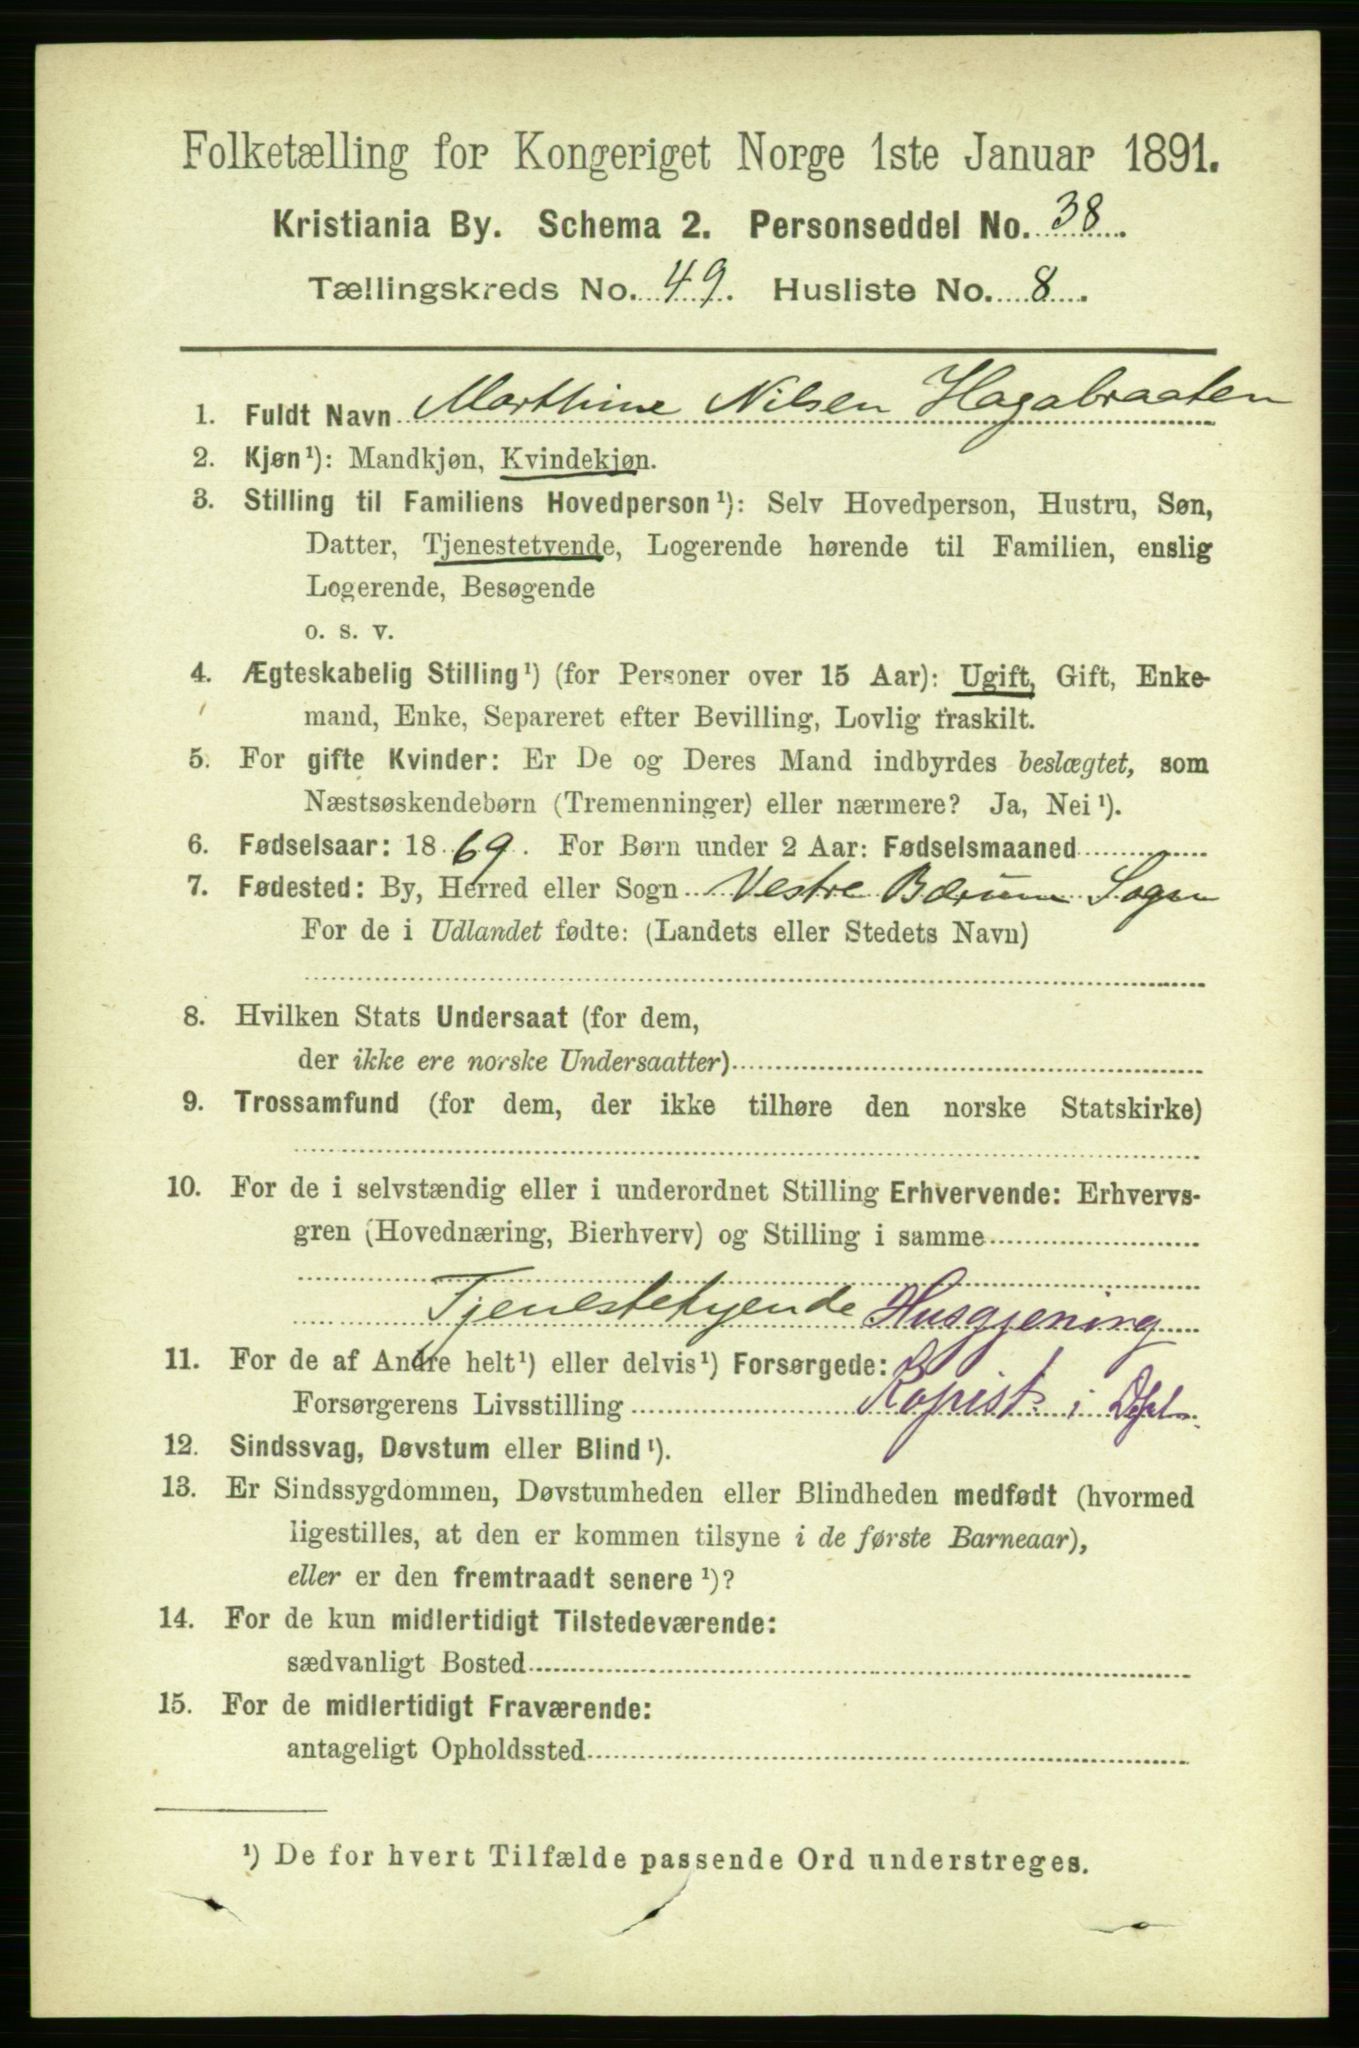 Folketælling for Kongeriget Norge 1ste Januar 1891.
Kristiania By. Schema 2. Personseddel No. 38.
Tællingskreds No. 49. Husliste No. 8.
1. Fuldt Navn Marthine Nilsen Hagabraaten
2. Kjøn¹): Mandkjøn, Kvindekjøn.
3. Stilling til Familiens Hovedperson¹): Selv Hovedperson, Hustru, Søn,
Datter, Tjenestetyende, Logerende hørende til Familien, enslig
Logerende, Besøgende
o. s. v.
4. Ægteskabelig Stilling¹) (for Personer over 15 Aar): Ugift, Gift, Enke-
mand, Enke, Separeret efter Bevilling, Lovlig fraskilt.
5. For gifte Kvinder: Er De og Deres Mand indbyrdes beslægtet, som
Næstsøskendebørn (Tremenninger) eller nærmere? Ja, Nei¹).
6. Fødselsaar: 1869. For Børn under 2 Aar: Fødselsmaaned
7. Fødested: By, Herred eller Sogn Vestre Bærum Sogn
For de i Udlandet fødte: (Landets eller Stedets Navn)
8. Hvilken Stats Undersaat (for dem,
der ikke ere norske Undersaatter)
9. Trossamfund (for dem, der ikke tilhøre den norske Statskirke)
10. For de i selvstændig eller i underordnet Stilling Erhvervende: Erhvervs-
gren (Hovednæring, Bierhverv) og Stilling i samme
Tjenestetyende Husgjening
11. For de af Andre helt¹) eller delvis¹) Forsørgede:
Forsørgerens Livsstilling Kopist i
12. Sindssvag, Døvstum eller Blind¹).
13. Er Sindssygdommen, Døvstumheden eller Blindheden medfødt (hvormed
ligestilles, at den er kommen tilsyne i de første Barneaar),
eller er den fremtraadt senere¹)?
14. For de kun midlertidigt Tilstedeværende:
sædvanligt Bosted
15. For de midlertidigt Fraværende:
antageligt Opholdssted
¹) De for hvert Tilfælde passende Ord understreges.